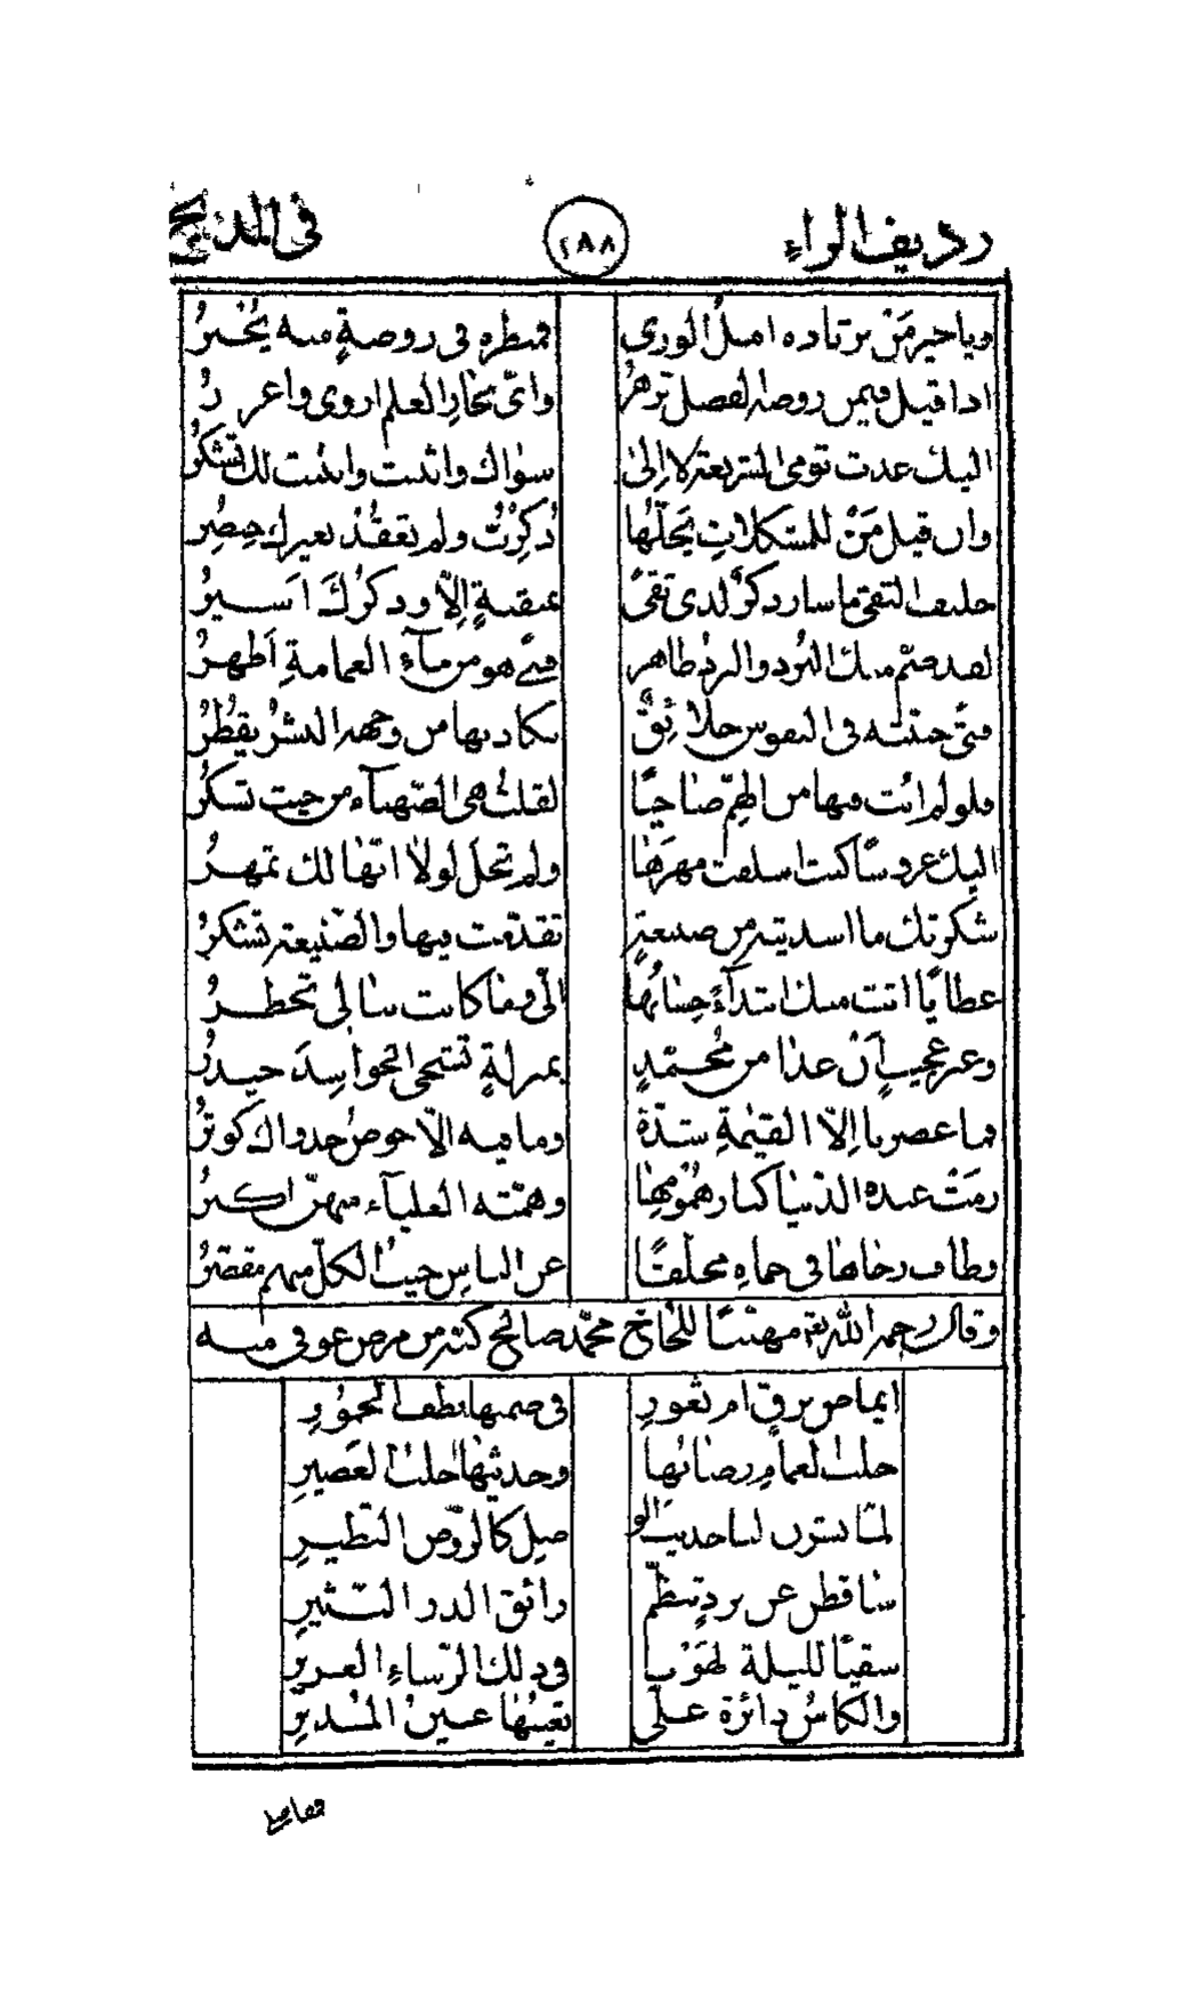 رديف الراء ٢٨٨ في المديح
وياخير مَنْ يرتاده امل الورى فمنظره في روضةٍ منه يُخْبِرُ
اذا قيل فيمن روضة الفضل تزهرُ وايّ بحارِ العلم اروى واغزرُ
اليك غدت تومي الشريعة لا إلى سواك واثنت وانثنت لك تشكرُ
وان قيل مَنْ للمشكلاتِ يَحُلّها ذُكِرْتَ ولم تُعْقَدْ بغيرك خِنصِر
حليف التقى ما سار ذكرٌ لذي تقىً بمنقبةٍ إلّا وذكرُك اَسْيرُ
لقد ضمّ منك البُرد والبردُ طاهر فتىً هو من مآءِ الغمامةِ اَطهرُ
فتىً حببته في النفوس خلائِقٌ يكاد بها من وجهه البشرُ يقطُرُ
فلو لم ابت فيها من الهمّ صاحياً لقلتُ هي الصّهبآء من حيث تسكرُ
اليك عروساً كنت اسلفت مهرَها ولم تحلَ لولا انّها لك تمهرُ
شكرتك ما اسديته من صنيعةٍ تقدّمت فيها والصّنيعة تشكرُ
عطايًا اتت منك ابتدآءً حِسانُها اليّ وما كانت ببالي تخطرُ
وغير عجيبٍ اَنْ غدا من مُحمّدٍ بمنزلةٍ تشجى الحواسِدَ حيدرُ
فما عصرنا إلّا القيٰمةِ شدّة وما فيه الّا حوضُ جدواك كوثرُ
رمَتْ عنده الدّنيا كبار هُمُومِها وهمّته العليآء منهنّ اكبرُ
وطاف رخاها في حماهِ محلّقاً عن الناسِ حيثُ الكلّ منهم مقصّرُ
وقال رحمه الله تع مهنّئاً للحاج محمّد صالح كبّه من مرض عوفي منه
ايماض برقٍ ام ثغورِ في ضمنها نطف الخمُورِ
حلب الغمامِ رضابُها وحديثها حلبُ العَصيرِ
لمّا نشرن لنا حديث الو صلِ كالرّوضِ النّظيرِ
ساقطن عن بردٍ تنظّم رائق الدر النّثيرِ
سقيًا لليلة لهونا في ذلك الرّشاءِ الغريرِ
والكاسُ دائرة علىّ بعينها عينُ المُديرِ